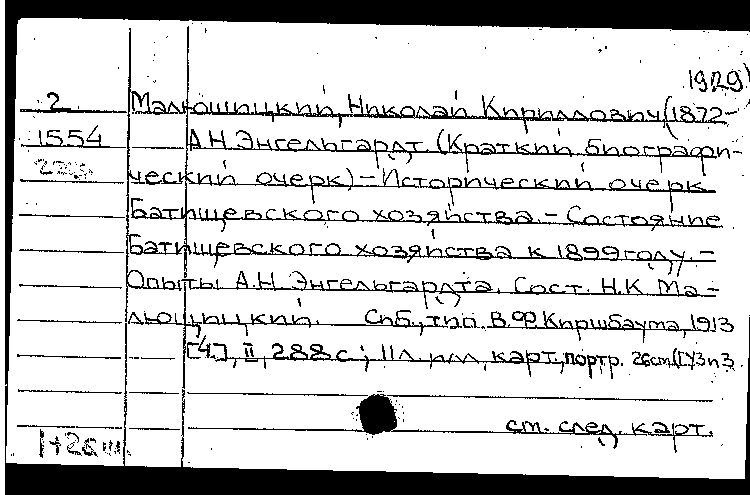 1929)
2 Малюшицкий, Николай Кириллович (1872-
1554 А.Н. Энгельгардт. (Краткий биографи-
223. ческий очерк) – Исторический очерк
Батищевского хозяйства. – Состояние
Батищевского хозяйства к 1899 году. –
Опыты А.Н. Энгельгардта. Сост. Н.К. Ма-
люшицкий. Спб., тип. В.Ф. Киршбаума, 1913
[4], II, 288 с.; 11 л. илл., карт., портр. 26 cm
см. след. карт.